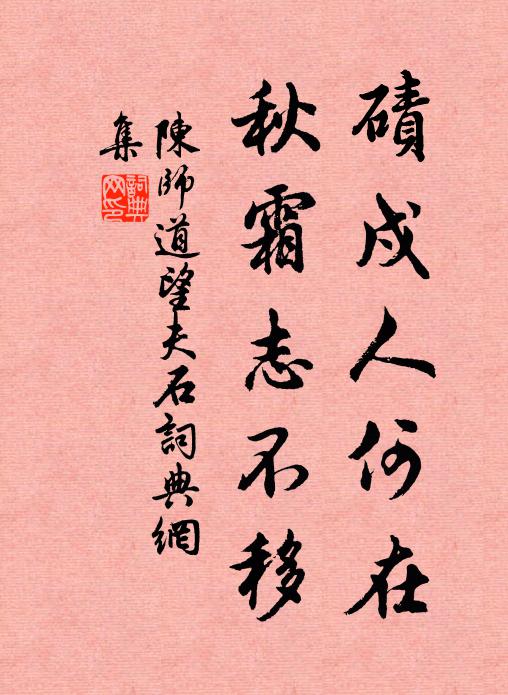 磧戍人何在
秋霜志不移
陳師道望夫石詞典網
集
詞典
网印